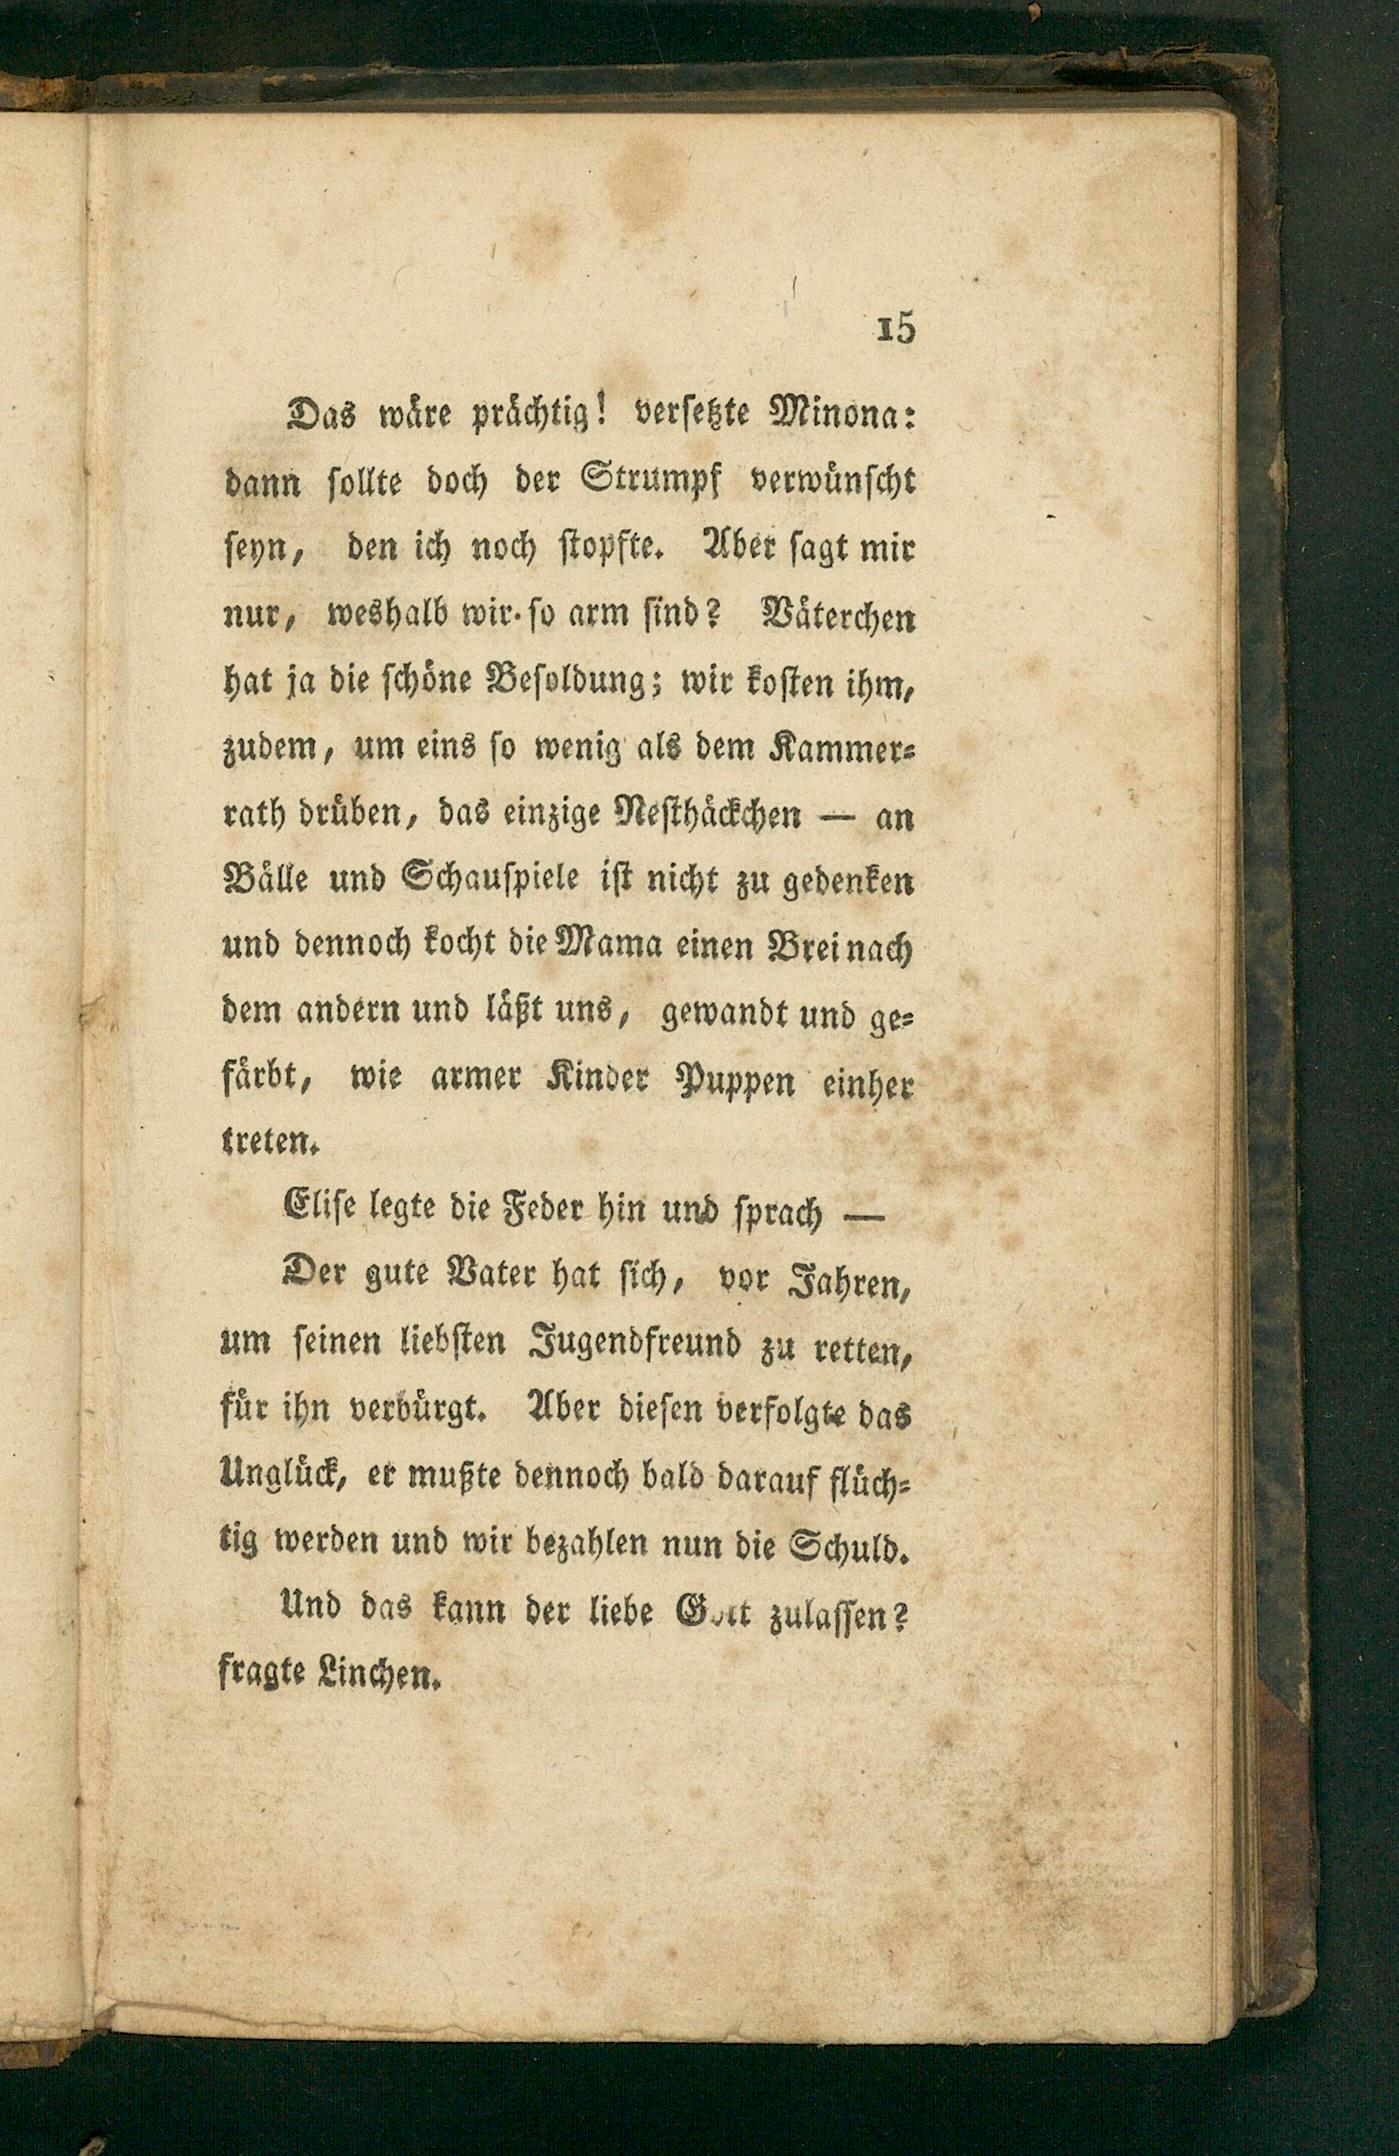 15
Das wäre prächtig! versetzte Minona:
dann sollte doch der Strumpf verwünscht
seyn, den ich noch stopfte. Aber sagt mir
nur, weshalb wir so arm sind? Väterchen
hat ja die schöne Besoldung; wir kosten ihm,
zudem, um eins so wenig als dem Kammer-
rath drüben, das einzige Nesthäckchen — an
Bälle und Schauspiele ist nicht zu gedenken
und dennoch kocht die Mama einen Brei nach
dem andern und läßt uns, gewandt und ge-
färbt, wie armer Kinder Puppen einher
treten.
Elise legte die Feder hin und sprach —
Der gute Vater hat sich, vor Jahren,
um seinen liebsten Jugendfreund zu retten,
für ihn verbürgt. Aber diesen verfolgte das
Unglück, er mußte dennoch bald darauf flüch-
tig werden und wir bezahlen nun die Schuld.
Und das kann der liebe Gott zulassen?
fragte Linchen.